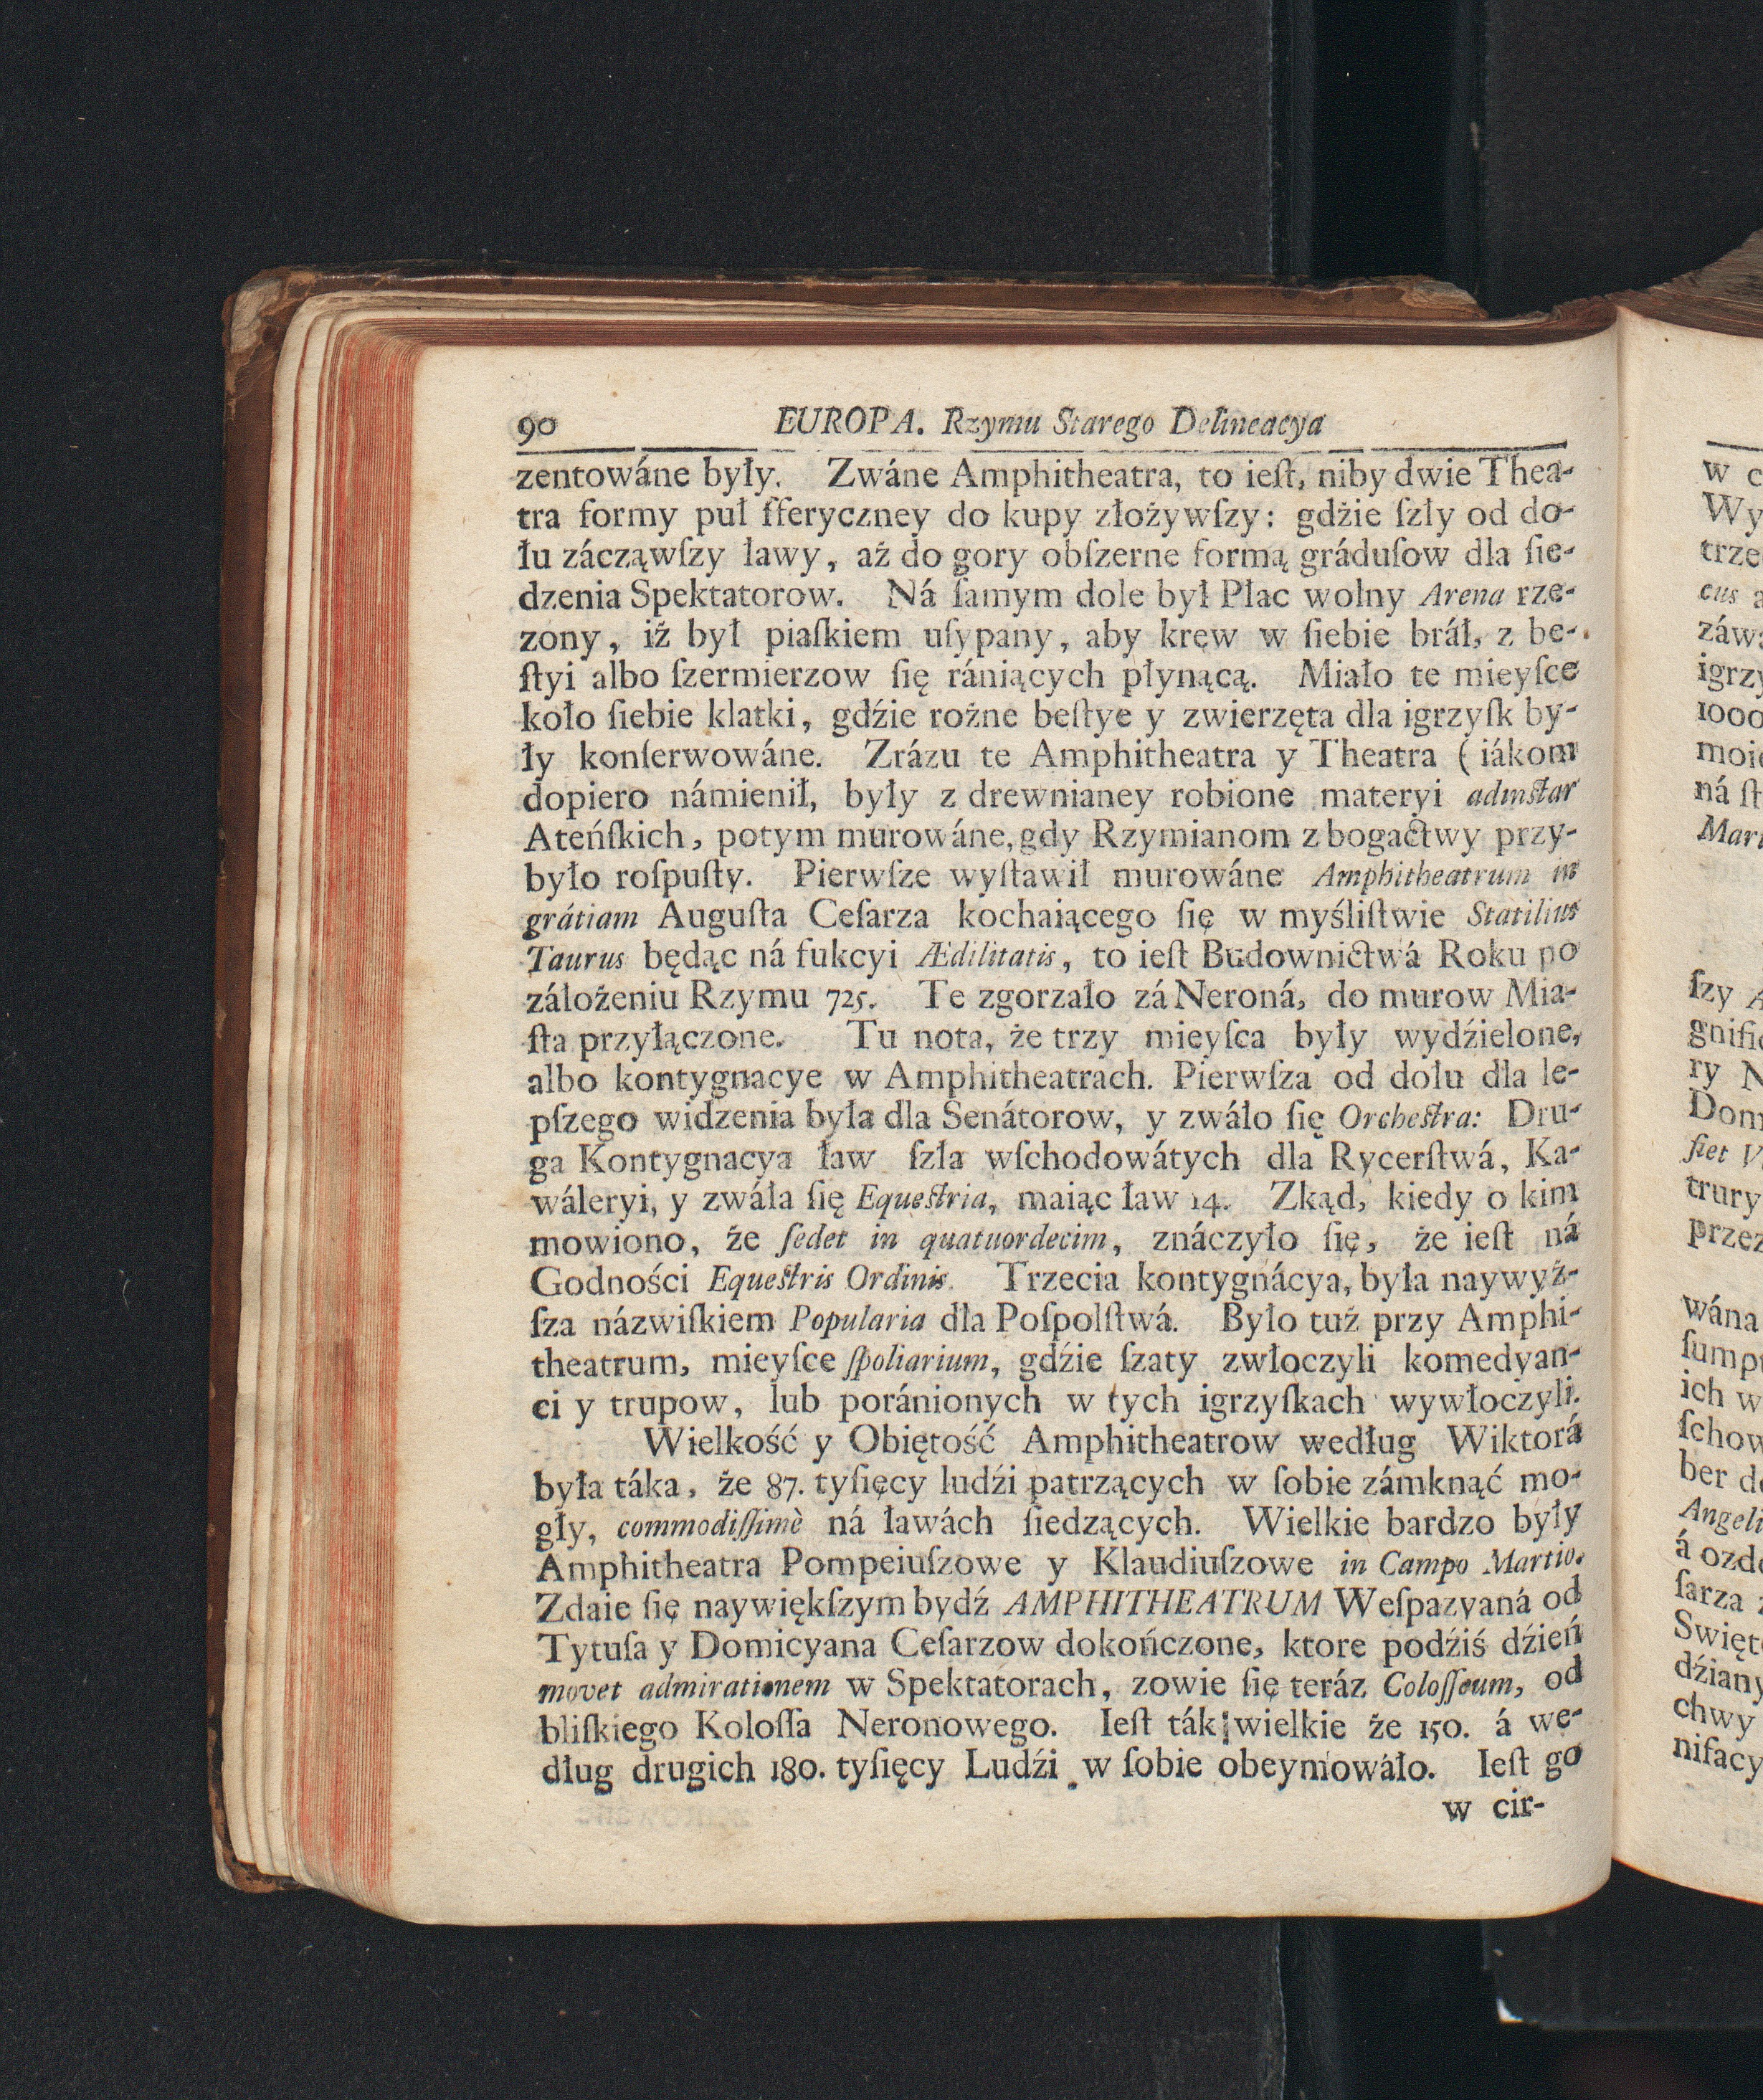 90 EUROPA. Rzymu Starego Delineacya
zentowáne były. Zwáne Amphitheatra, to ieſt, niby dwie Thea-
tra formy puł ſferyczney do kupy złożywſzy: gdźie ſzły od do-
łu zácząwſzy ławy, aż do gory obſzerne formą gráduſow dla ſie-
dzenia Spektatorow. Ná ſamym dole był Plac wolny Arena rze-
zony, iż był piaſkiem uſypany, aby kręw w ſiebie bráł, z be-
ſtyi albo ſzermierzow ſię rániących płynącą. Miało te mieyſce
koło ſiebie klatki, gdźie rożne beſtye y zwierzęta dla igrzyſk by-
ły konſerwowáne. Zrázu te Amphitheatra y Theatra ( iákom
dopiero námienił, były z drewnianey robione materyi adinſtar
Ateńſkich, potym murowáne, gdy Rzymianom z bogactwy przy-
było roſpuſty. Pierwſze wyſtawił murowáne Amphitheatrum in
grátiam Auguſta Ceſarza kochaiącego ſię w myśliſtwie Statilius
Taurus będąc ná fukcyi Ædilitatis, to ieſt Budownictwá Roku po
záłożeniu Rzymu 725. Te zgorzało zá Neroná, do murow Mia-
ſta przyłączone. Tu nota, że trzy mieyſca były wydźielone,
albo kontygnacye w Amphitheatrach. Pierwſza od dołu dla le-
pſzego widzenia była dla Senátorow, y zwáło ſię Orcheſtra: Dru-
ga Kontygnacya ław ſzła wſchodowátych dla Rycerſtwá, Ka-
wáleryi, y zwáła ſię Equeſtria, maiąc ław 14. Zkąd, kiedy o kim
mowiono, że ſedet in quatuordecim, znáczyło ſię, że ieſt ná
Godności Equeſtris Ordinis. Trzecia kontygnácya, była naywyż-
ſza názwiſkiem Popularia dla Poſpolſtwá. Było tuż przy Amphi-
theatrum, mieyſce ſpoliarium, gdźie ſzaty zwłoczyli komedyan-
ci y trupow, lub poránionych w tych igrzyſkach wywłoczyli.
Wielkość y Obiętość Amphitheatrow według Wiktorá
była táka, że 87. tyſięcy ludźi patrzących w ſobie zámknąć mo-
gły, commodiſſimè ná ławách ſiedzących. Wielkie bardzo były
Amphitheatra Pompeiuſzowe y Klaudiuſzowe in Campo Martio.
Zdaie ſię naywiękſzym bydź AMPHITHEATRUM Weſpazyaná od
Tytuſa y Domicyana Ceſarzow dokończone, ktore podźiś dźień
movet admirationem w Spektatorach, zowie ſię teráz Coloſſeum, od
bliſkiego Koloſſa Neronowego. Ieſt ták wielkie że 150. á we-
dług drugich 180. tyſięcy Ludźi w ſobie obeymowáło. Ieſt go
w cir-
w c
Wy
trze
cus a
záw
igrzy
1000
moie
ná ſt
Mar
ſzy
gnific
ry N
Dom
ſiet V
trury
przez
wána
ſump
ich w
ſchow
ber d
Angeli
á ozd
ſarza
Swięt
dźiany
chwy
nifacy